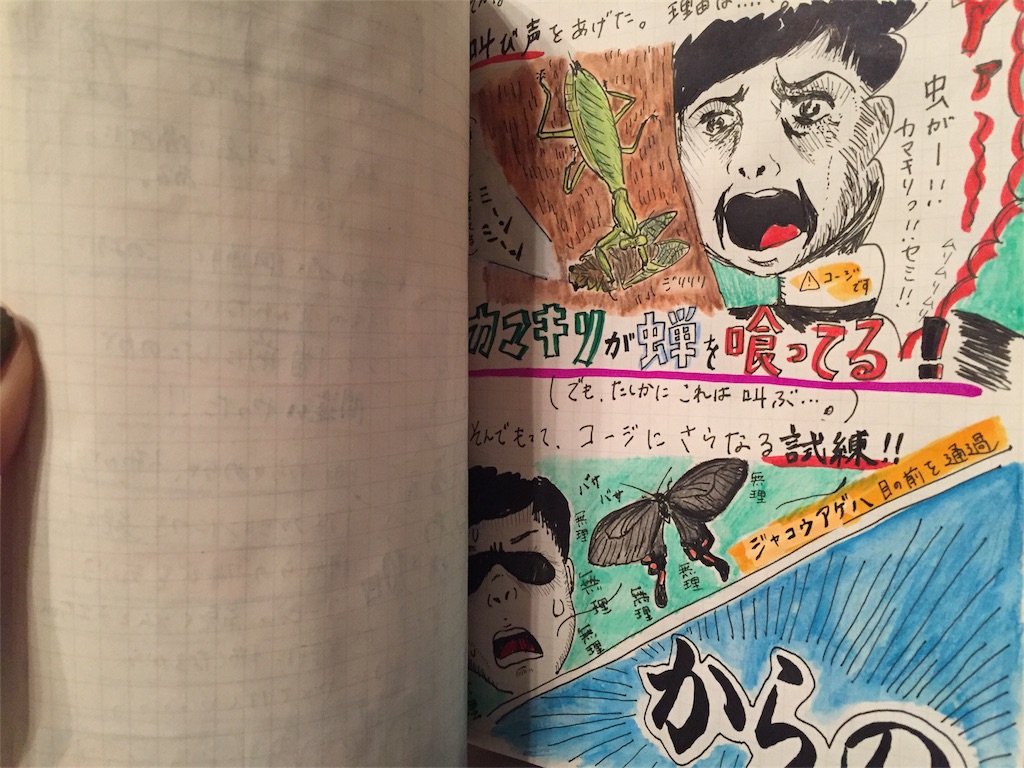 叫び声をあげた。理由は.....。
アァ〜〜
虫がー!!
カマキリっ!!セミ!!
ムリムリムリ
ミーン
ジリリリ
⚠コージです
カマキリが蝉を喰ってる!!
(でも、たしかにこれは叫ぶ...。)
そんでもって、コージにさらなる試練!!
バサバサ
無理
無理
無理
無理
無理
無理
ジャコウアゲハ 目の前を通過
からの